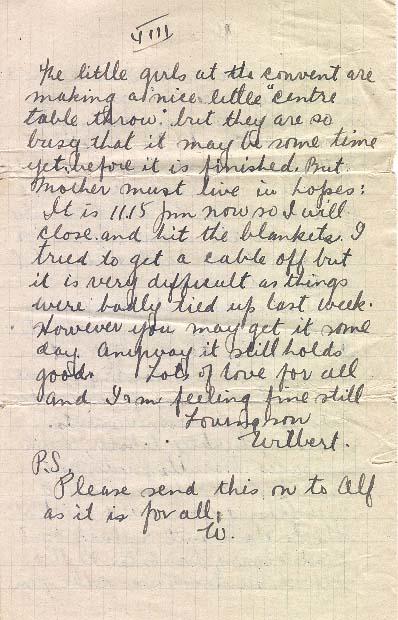 VIII
The little girls at the convent are
making a nice little "centre
table throw" but they are so
busy that it may be some time
yet, before it is finished. But
Mother must live in hopes:
It is 11.15 pm now so I will
close and hit the blankets. I
tried to get a cable off but
it is very difficult as things
were badly tied up last week.
However you may get it some
day. Anyway it still holds
good. Lots of love for all
and I am feeling fine still
Loving son
Wilbert.
P.S.
Please send this on to Alf
as it is for all.
W.